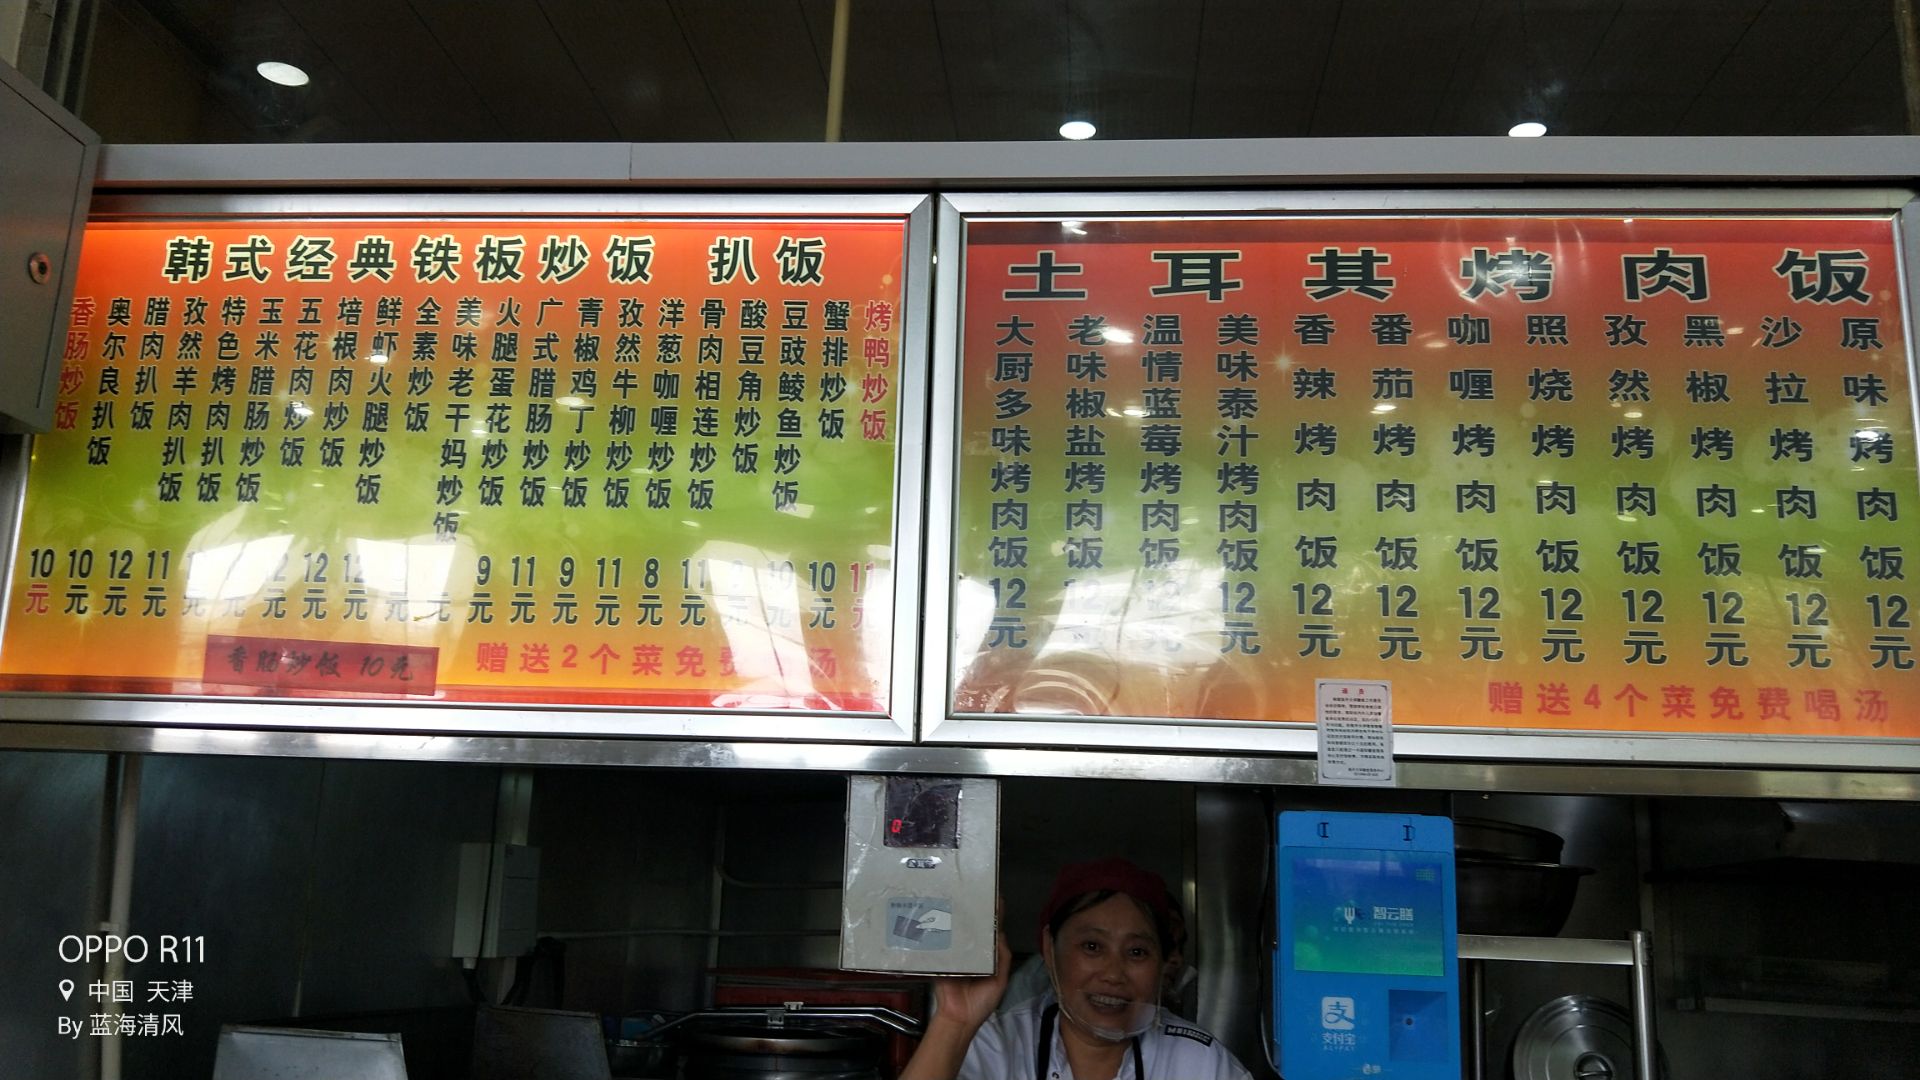 韩式经典铁板炒饭 扒饭
香肠炒饭 10元
奥尔良扒饭 10元
腊肉扒饭 12元
孜然羊肉扒饭 11元
特色烤肉扒饭
玉米腊肠炒饭
五花肉炒饭
培根肉炒饭 12元
鲜虾火腿炒饭 12元
全素炒饭
美味老干妈炒饭 元
火腿蛋花炒饭 9元
广式腊肠炒饭 11元
青椒鸡丁炒饭 9元
孜然牛柳炒饭 11元
洋葱咖喱炒饭 8元
骨肉相连炒饭 11元
酸豆角炒饭 元
豆豉鲮鱼炒饭 10元
蟹排炒饭 10元
烤鸭炒饭 11元
香肠炒饭 10元
赠送2个菜免费 汤
土耳其烤肉饭
大厨多味烤肉饭 12元
老味椒盐烤肉饭 12元
温情蓝莓烤肉饭 12元
美味泰汁烤肉饭 12元
香辣烤肉饭 12元
番茄烤肉饭 12元
咖喱烤肉饭 12元
照烧烤肉饭 12元
孜然烤肉饭 12元
黑椒烤肉饭 12元
沙拉烤肉饭 12元
原味烤肉饭 12元
赠送4个菜免费喝汤
智云膳
支付宝
OPPO R11
中国 天津
By 蓝海清风